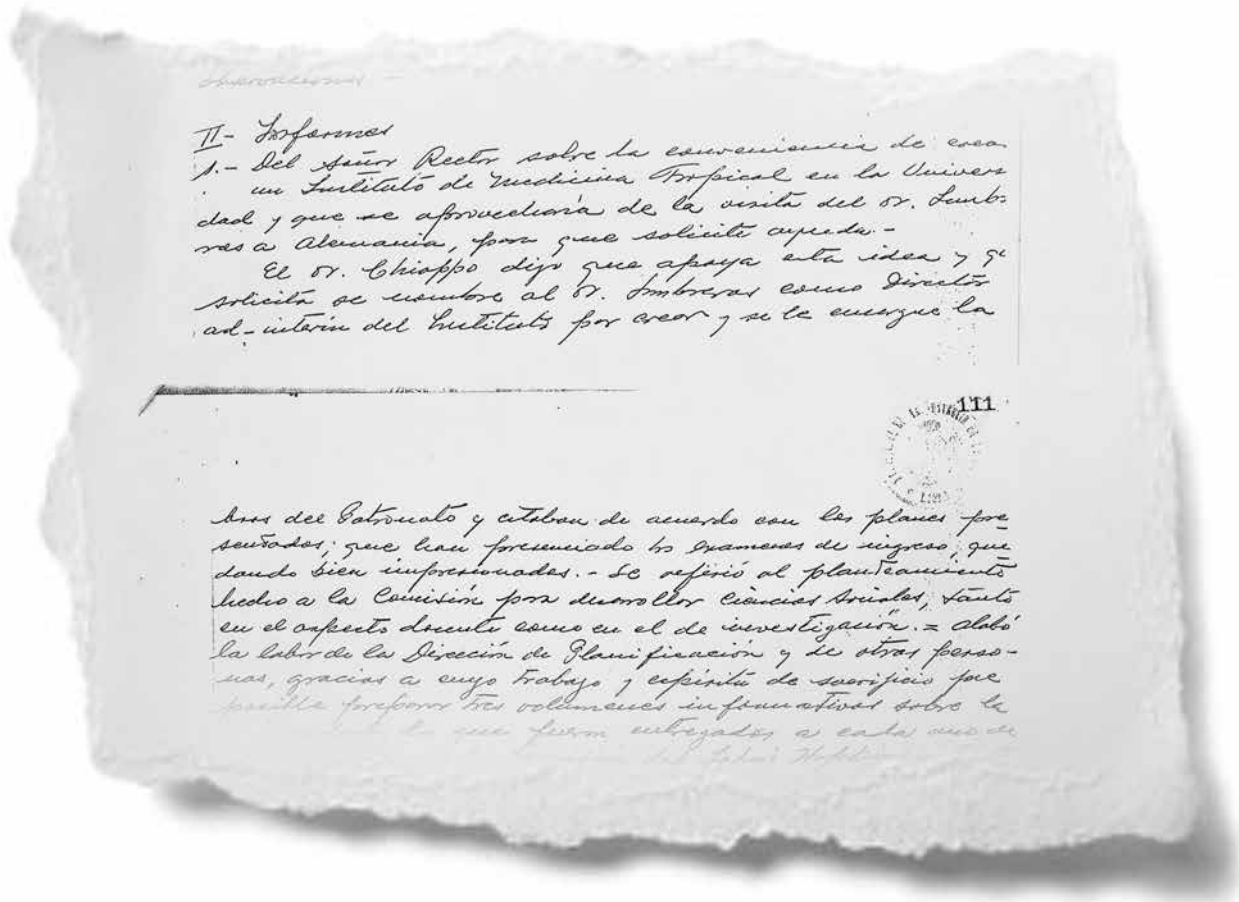 observaciones -
II- Informes
1.- Del Señor Rector sobre la conveniencia de crea
un Instituto de Medicina Tropical en la Univers
dad y que se aprovecharía de la visita del Dr. Lumb-
ras a Alemania, para que solicite ayuda.-
El Dr. Chiappo dijo que apoya esta idea y q
solicita se nombre al Dr. Lumbreras como Director
ad-interin del Instituto por crear y se le encargue la
111
LIMA
bros del Patronato y estaban de acuerdo con los planes pre
sentados; que han presenciado los exámenes de ingreso, que
dando bien impresionados.- Se refirió al planteamiento
hecho a la Comisión para desarrollar Ciencias Sociales, tanto
en el aspecto docente como en el de investigación.= Alabó
la labor de la Dirección de Planificación y de otras perso-
nas, gracias a cuyo trabajo y espíritu de sacrificio fue
posible preparar tres volúmenes informativos sobre la
que fueron entregados a cada uno de